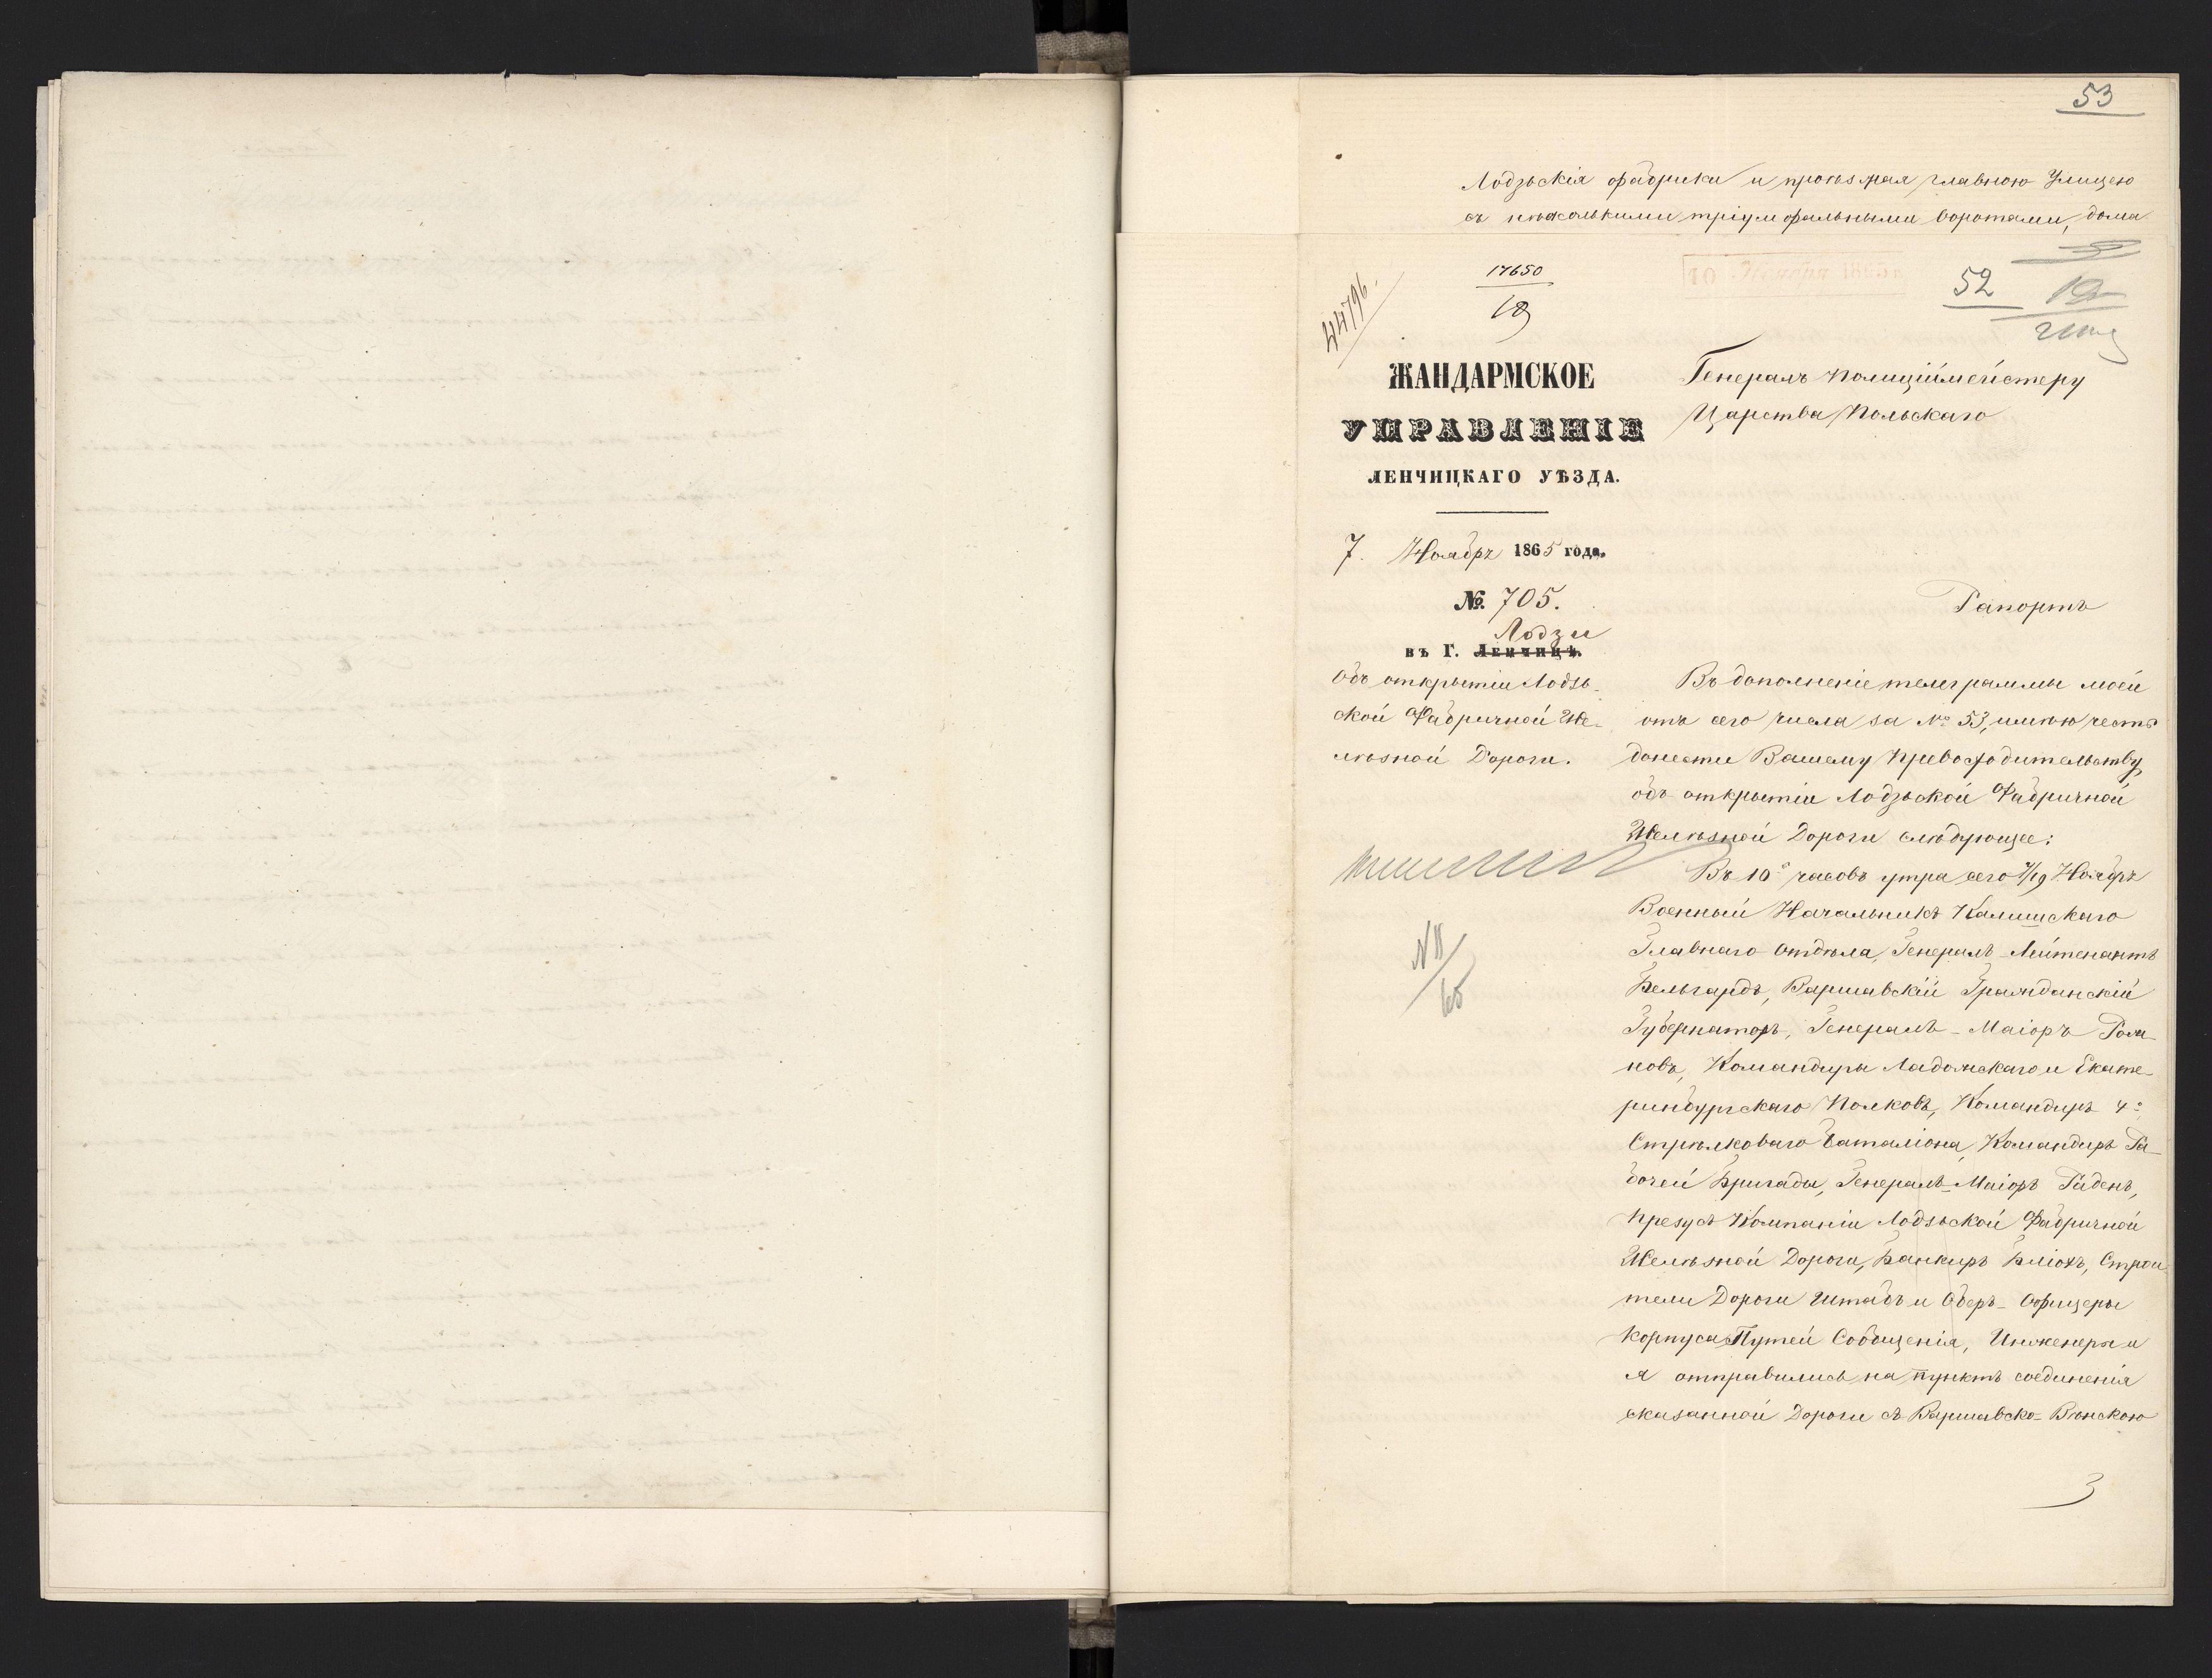 53
Лодзьскія фабрики и проѣзжая главною Улицею
съ нѣсколькими тріумфальными воротами, дома
44796.
17650
18
10 Ноября 1865
52
ЖАНДАРМСКОЕ
УПРАВЛЕНІЕ
ЛЕНЧИЦКАГО УѢЗДА.
7. Ноябрь 1865 года.
№ 705.
Лодзи
въ Г. Ленчицѣ.
Объ открытіи Лодзь-
ской Фабричной Же-
лѣзной Дороги.
Генералъ Полиціймейстеру
Царства Польскаго
Рапортъ
Въ дополненіе телеграммы моей
отъ сего числа за № 53, имѣю честь
донести Вашему Превосходительству,
объ открытіи Лодзьской Фабричной
Желѣзной Дороги слѣдующее:
Въ 10 часовъ утра сего 7/19 Ноябрь
Военный Начальникъ Калишскаго
Главнаго Отдѣла, Генералъ-Лейтенантъ
Бельгардъ, Варшавскій Гражданскій
Губернаторъ, Генералъ-Маіоръ Рожновъ
, Командиры Ладожскаго и Екате-
ринбургскаго Полковъ, Командиръ 4º
Стрѣлковаго Баталіона, Командиръ Ра-
бочей Бригады, Генералъ-Маіоръ Гиденъ,
Презусъ Компаніи Лодзьской Фабричной
Желѣзной Дороги, Банкиръ Бліохъ, Строи
тели Дороги Штабъ и Оберъ-Офицеры
Корпуса Путей Сообщенія, Инженеры и
я отправились на пунктъ соединенія
сказанной Дороги съ Варшавско-Вѣнскою
N 11/65
3